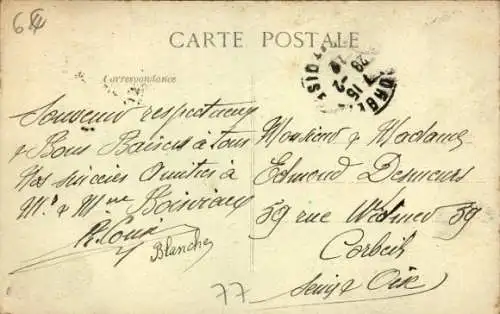 64
CARTE POSTALE
Correspondance
Souvenir respectueux
& Bons Baisers à tous
Nos sincères Amitiés à
Mr & Mme
Blanche
Monsieur & Madame
Edmond
59 rue 59
Corbeil
Seine & Oise
77